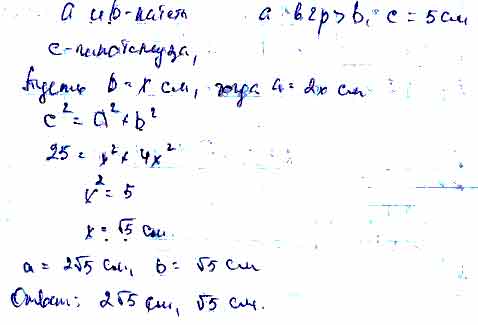 a и b - катеты a в 2р > b, c = 5 см
c - гипотенуза,
Пусть b = x см, тогда a = 2x см
c² = a² + b²
25 = x² + 4x²
x² = 5
x = √5 см.
a = 2√5 см, b = √5 см
Ответ: 2√5 см, √5 см.